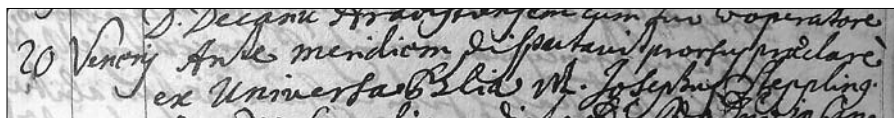 D. Decanu Hradistensem cum suo Cooperatore
20 Veneris Ante meridiem disputavit prorsus præclare
ex Universa Philia M. Josephus Steppling.